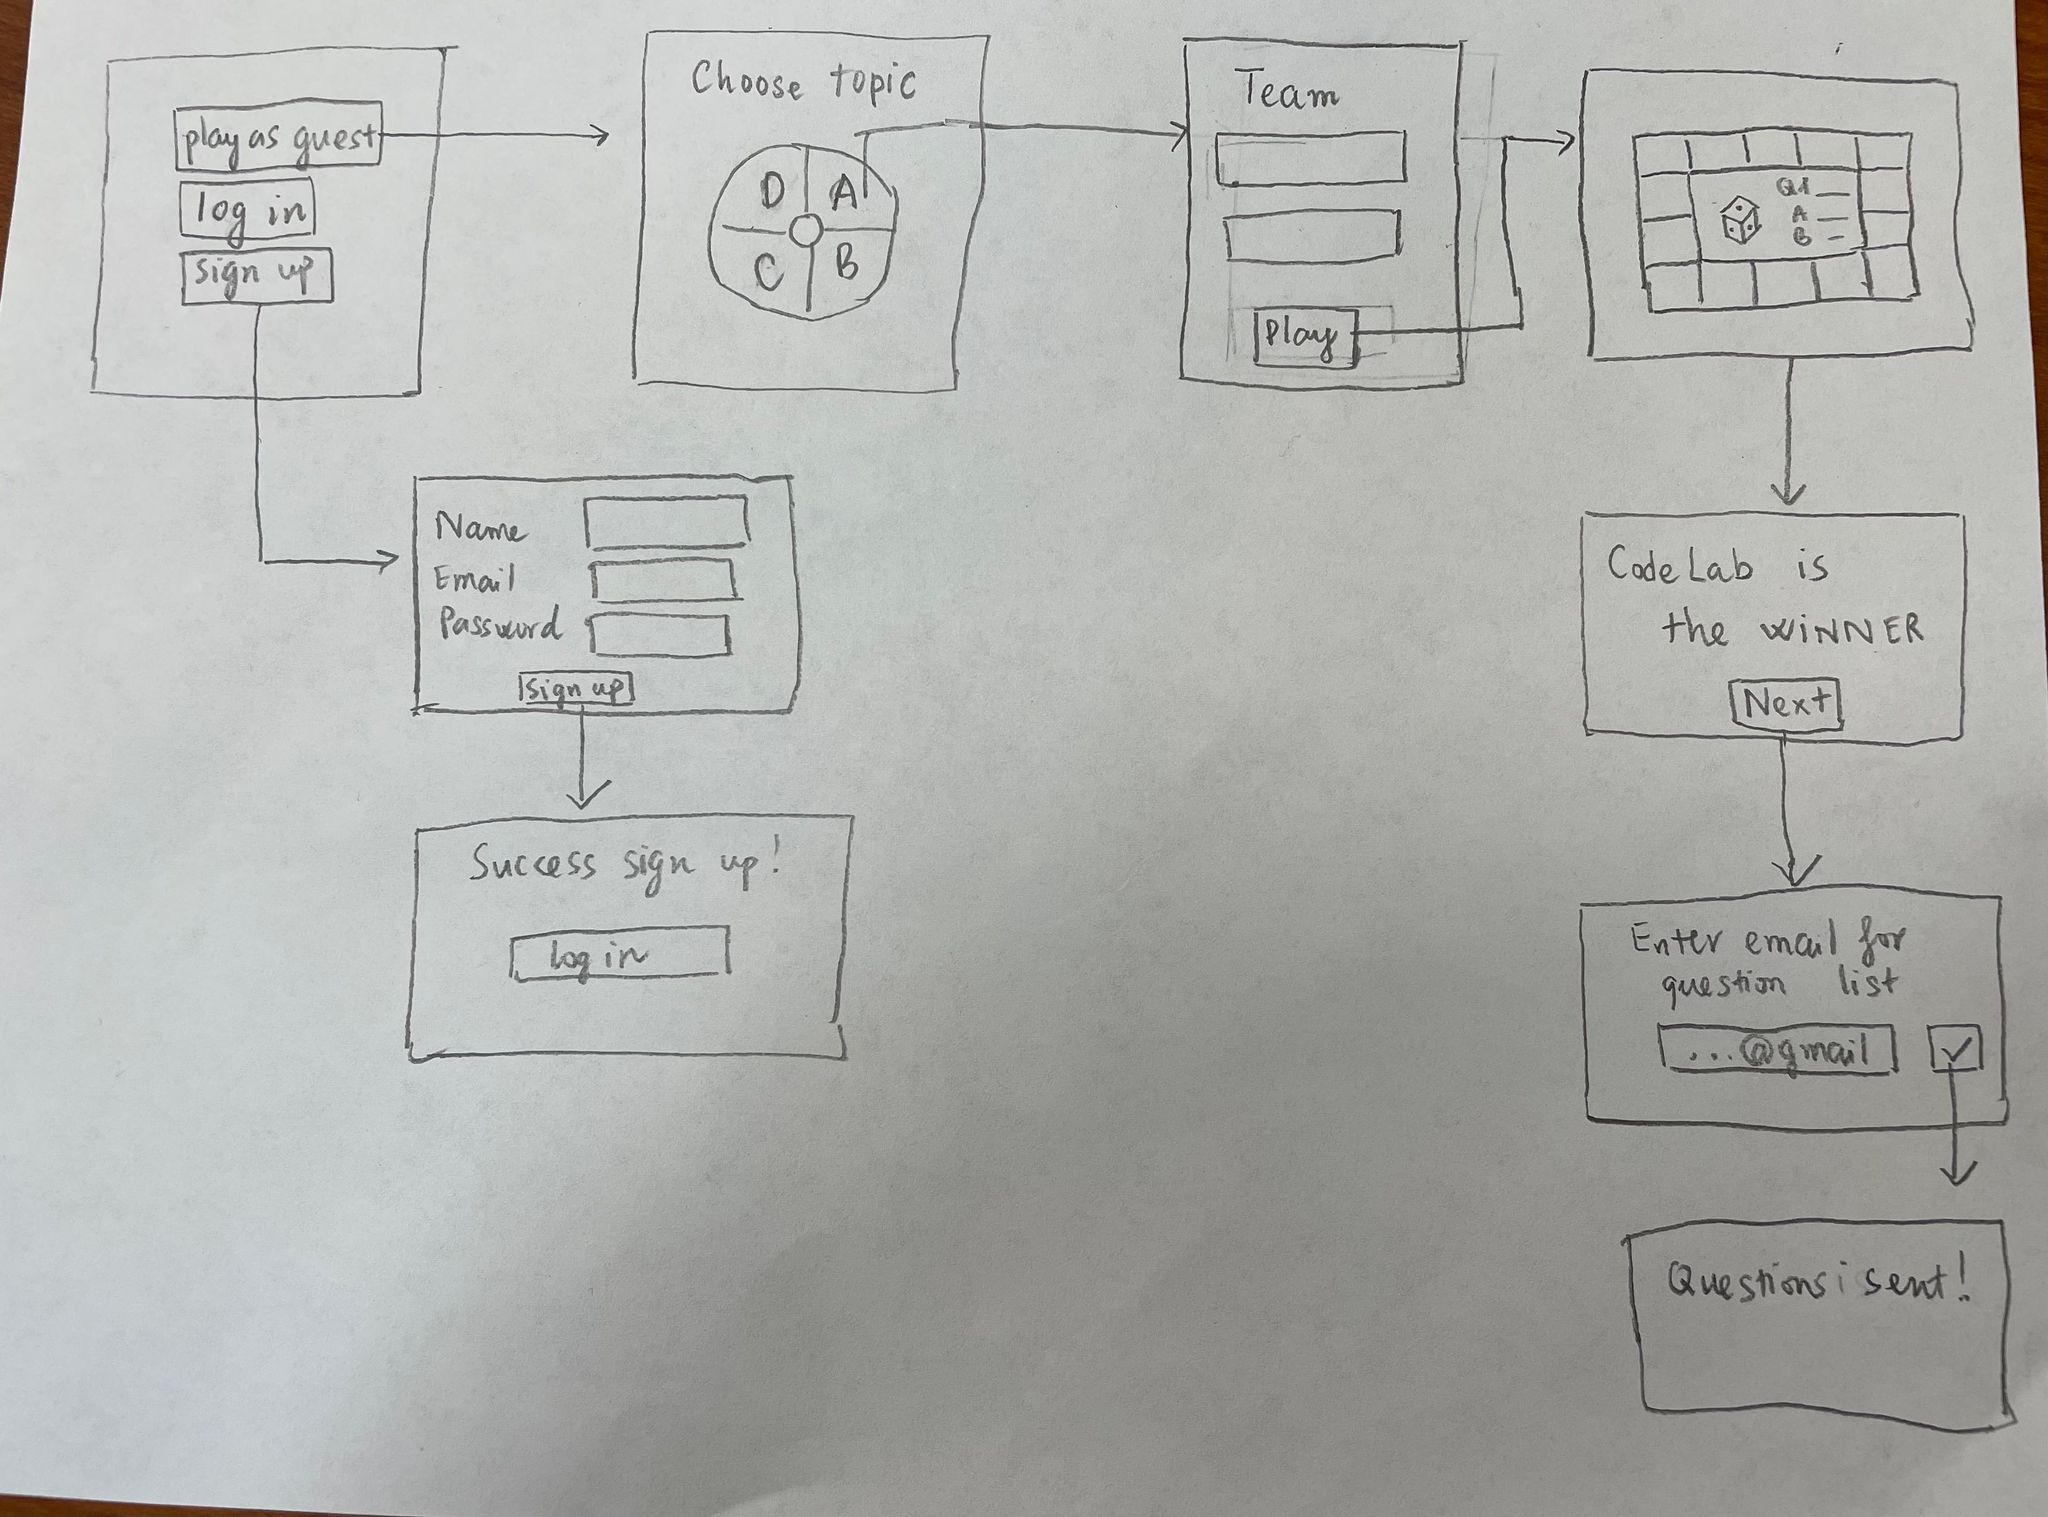 play as guest
log in
sign up
Choose topic
D A
C B
Team
Play
Q1
A
B
Name
Email
Password
sign up
Success sign up!
log in
CodeLab is
the WINNER
Next
Enter email for
question list
...@gmail
Questions sent!